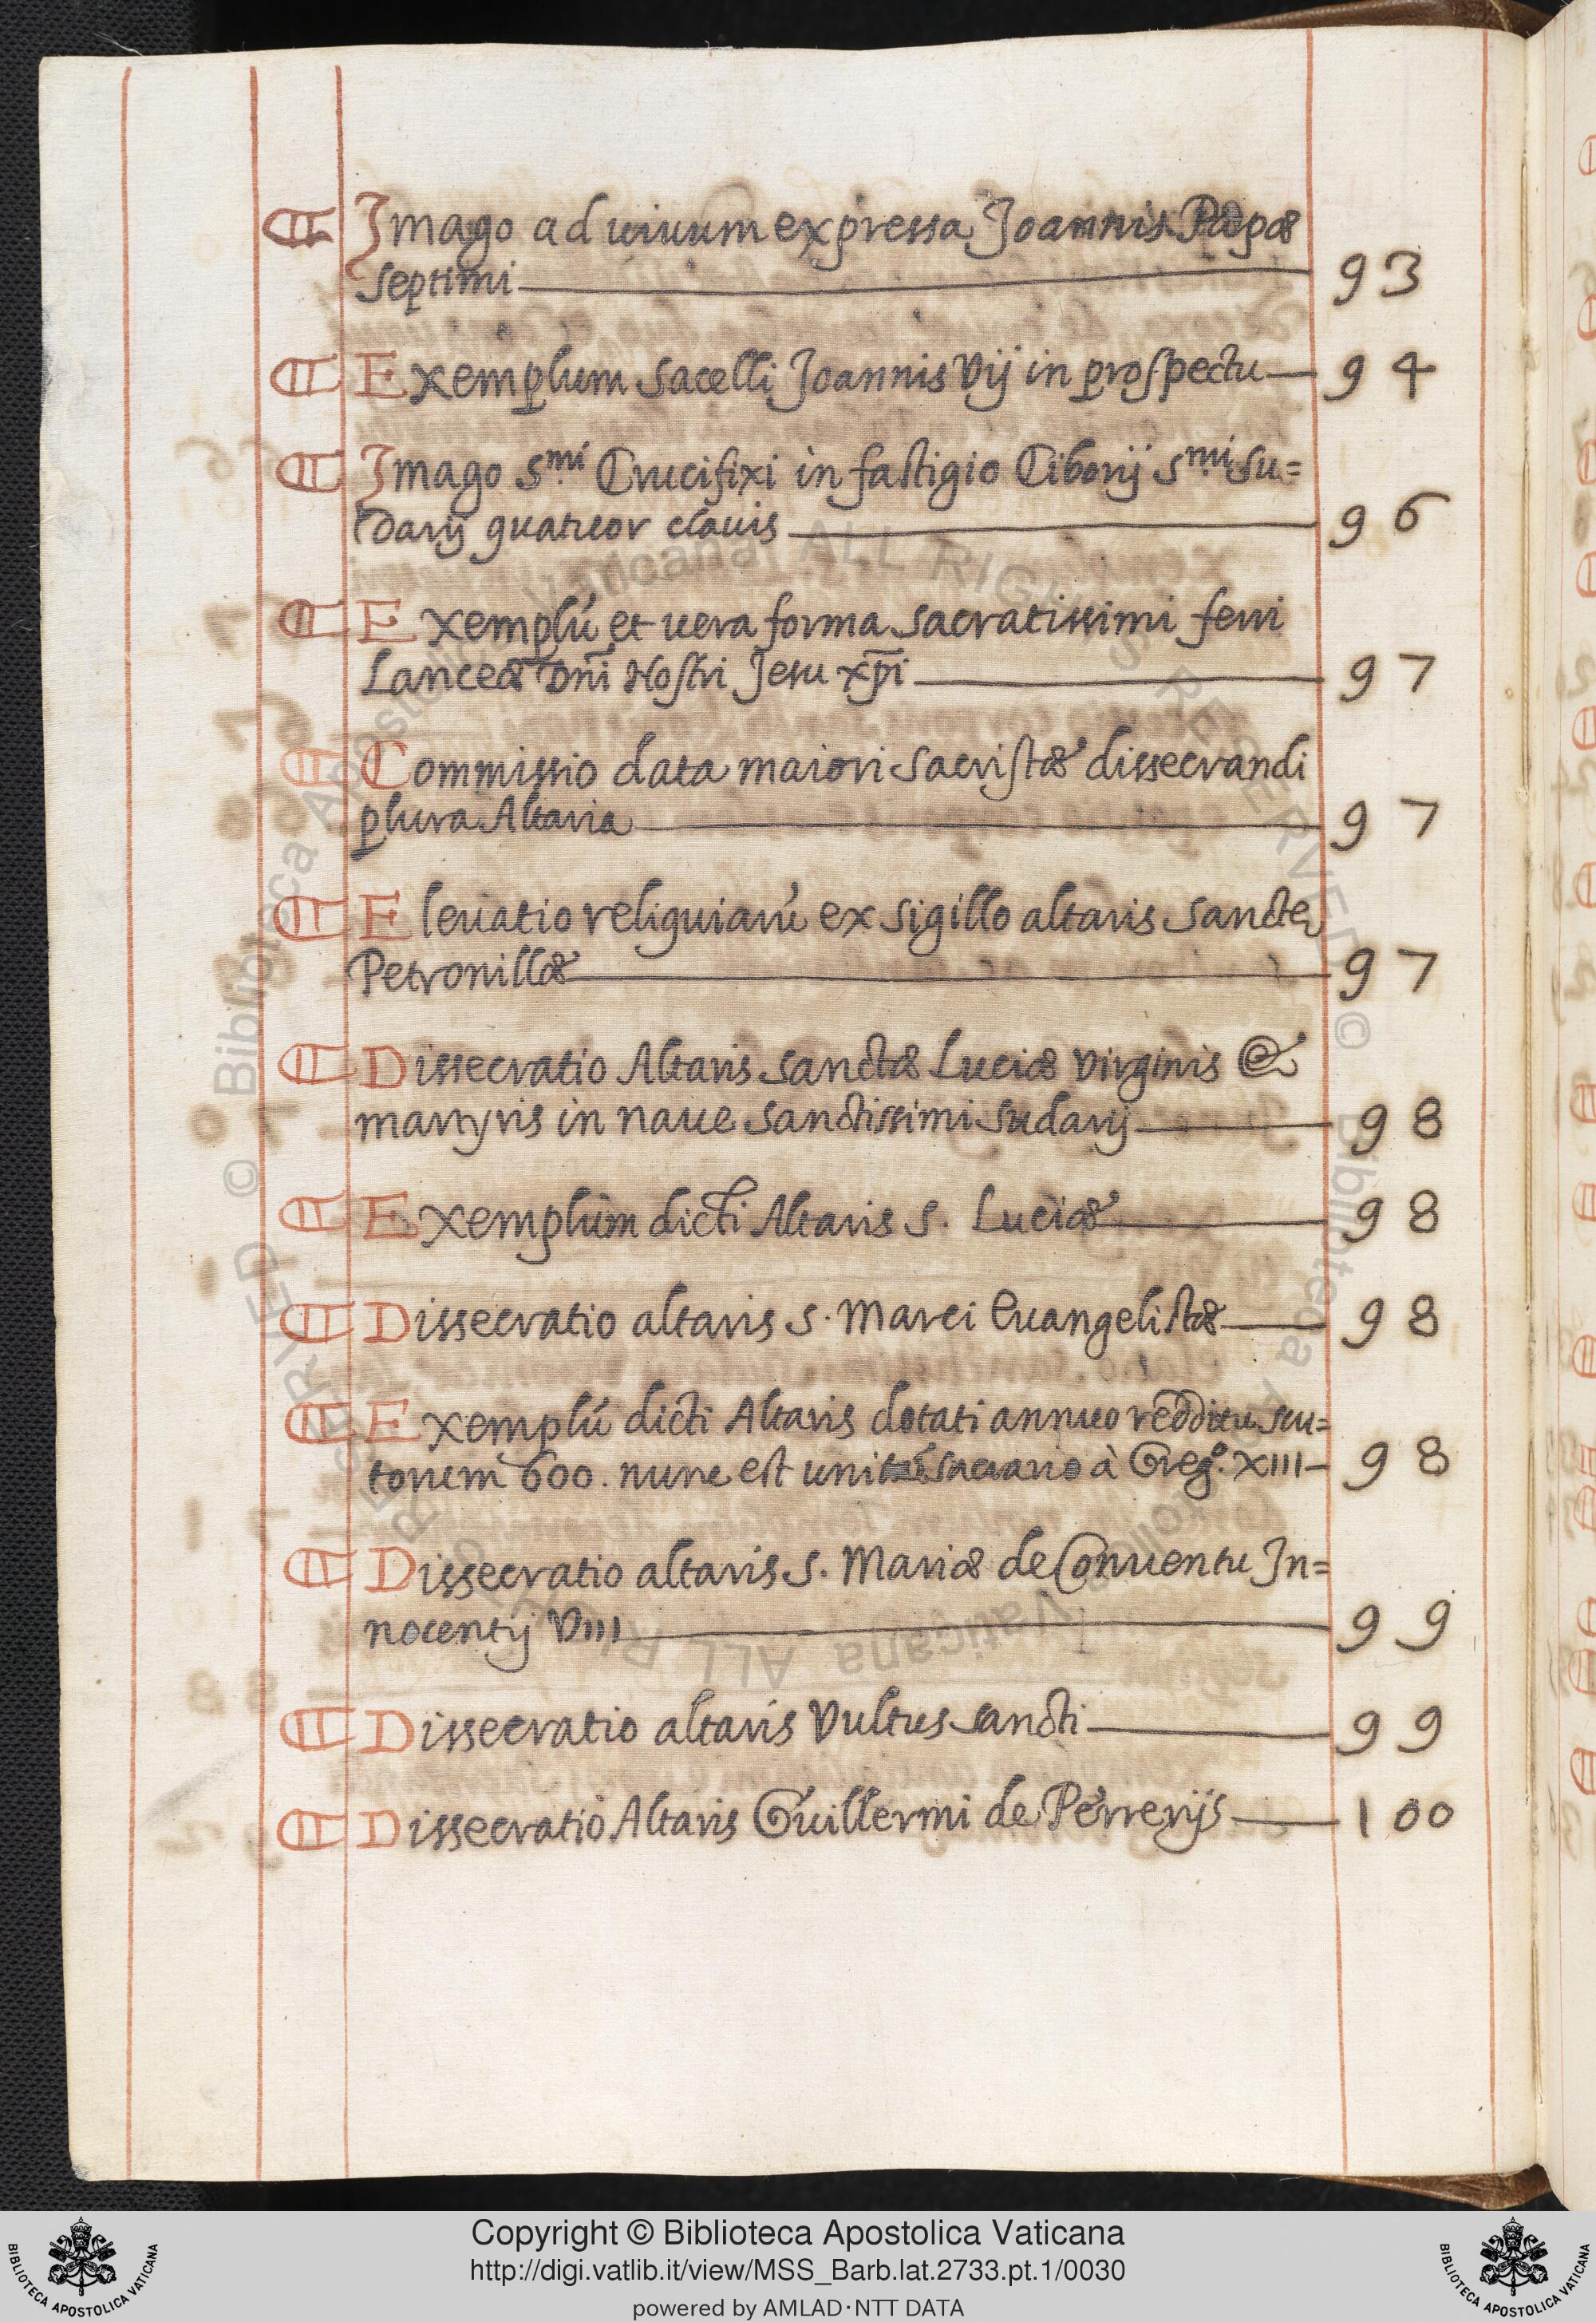 ¶ Imago ad uiuum expressa Joannis Papæ
septimi 93
¶ Exemplum sacelli Joannis Vij in prospectu 94
¶ Imago S.mi Crucifixi in fastigio Ciborij S.mi su=
darij quatuor clauis 96
¶ Exemplú et uera forma sacratissimi ferri
Lanceæ Dñi Nostri Jesu xp̄i 97
¶ Commissio data maiori sacristæ dissecrandi
plura Altaria 97
¶ Eleuatio reliquiarú ex sigillo altaris sancte
Petronillæ 97
¶ Dissecratio Altaris sanctæ Luciæ virginis &
martyris in naue sanctissimi sudarij 98
¶ Exemplum dicti Altaris S. Luciæ 98
¶ Dissecratio altaris S. Marci Euangelistæ 98
¶ Exemplú dicti Altaris dotati annuo redditu scu=
torum 600. nunc est unitú sacrario à Greg.o XIII 98
¶ Dissecratio altaris S. Mariæ de Conuentu In=
nocentij VIII 99
¶ Dissecratio altaris Vultus sancti 99
¶ Dissecratio Altaris Guillermi de Perrerijs 100
© Biblioteca Apostolica Vaticana ALL RIGHTS RESERVED
Copyright © Biblioteca Apostolica Vaticana
http://digi.vatlib.it/view/MSS_Barb.lat.2733.pt.1/0030
powered by AMLAD·NTT DATA
BIBLIOTECA APOSTOLICA VATICANA
BIBLIOTECA APOSTOLICA VATICANA